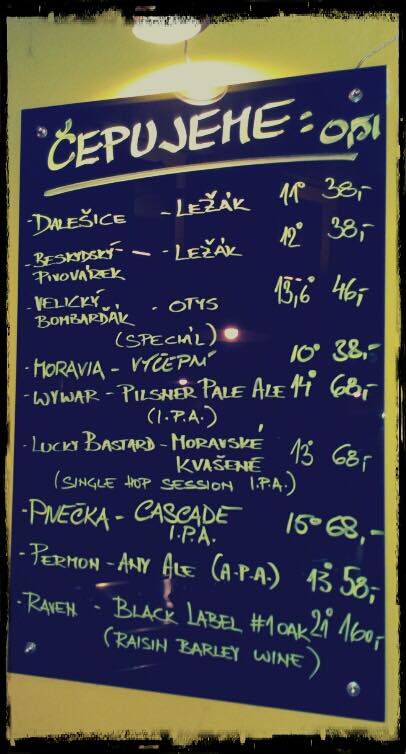 ČEPUJEME: 0,5l
- DALEŠICE - LEŽÁK 11° 38,-
- BESKYDSKÝ - LEŽÁK 12° 38,-
PIVOVÁREK
- VELICKÝ - OTYS 13,6° 46,-
BOMBARĎÁK
(SPECIÁL)
- MORAVIA - VÝČEPNÍ 10° 38,-
- WYWAR - PILSNER PALE ALE 14° 68,-
(I.P.A.)
- LUCKY BASTARD - MORAVSKÉ 13° 68,-
KVAŠENÉ
(SINGLE HOP SESSION I.P.A.)
- PIVEČKA - CASCADE 15° 68,-
I.P.A.
- PERMON - ANY ALE (A.P.A.) 13° 58,-
- RAVEN - BLACK LABEL #1 OAK 21° 160,-
(RAISIN BARLEY WINE)